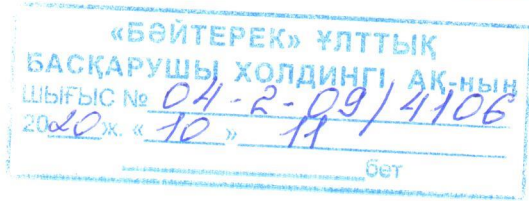 «БӘЙТЕРЕК» ҰЛТТЫҚ
БАСҚАРУШЫ ХОЛДИНГІ, АҚ-ның
ШЫҒЫС № 04-2-09/4106
2020 ж. « 10 » 11
бет